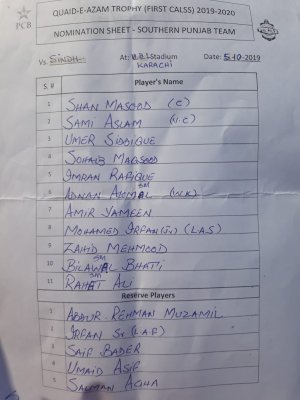 PCB
QUAID-E-AZAM TROPHY (FIRST CALSS) 2019-2020
NOMINATION SHEET - SOUTHERN PUNJAB TEAM
Vs. SINDH At: U.B.L Stadium KARACHI Date: 5-10-2019
S. # Player's Name
1 SHAN MASOOD (C)
2 SAMI ASLAM (V.C)
3 UMER SIDDIQUE
4 SOHAIB MAQSOOD
5 IMRAN RAFIQUE
6 ADNAN AKMAL (W.K)
7 AMIR YAMEEN
8 MOHAMED IRFAN (Jr) (L.A.S)
9 ZAHID MEHMOOD
10 BILAWAL BHATTI
11 RAHAT ALI
Reserve Players
1 ABDUR-REHMAN MUZAMIL
2 IRFAN Sr (L.A.F)
3 SAIF BADER
4 UMAID ASIF
5 SALMAN AGHA